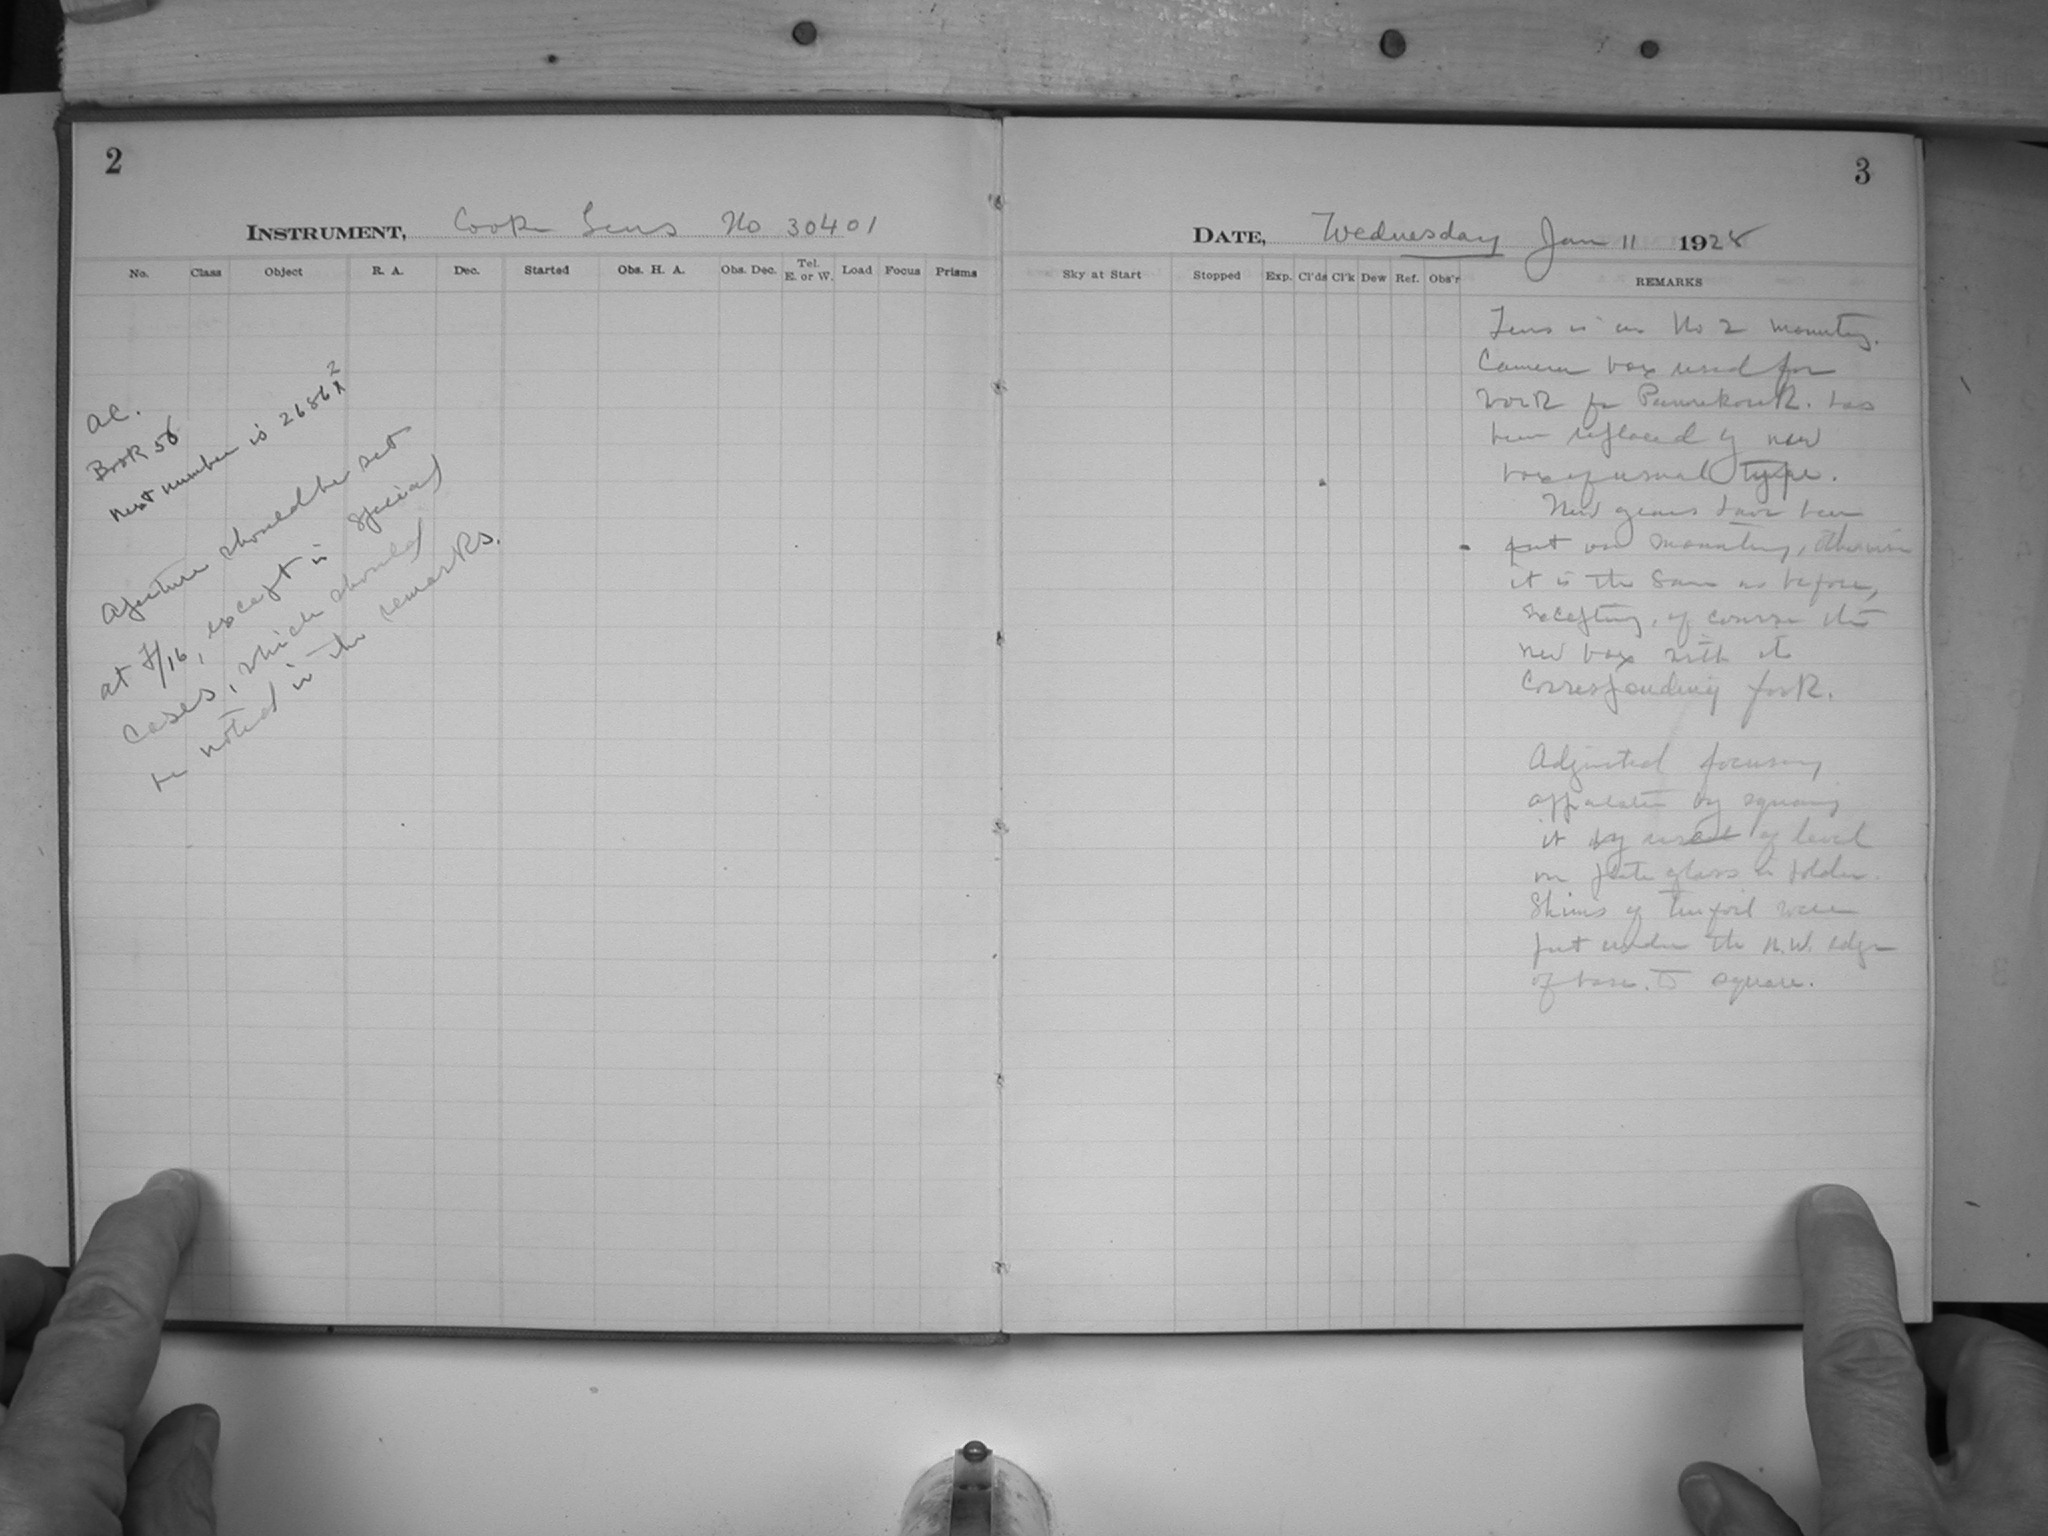 2
INSTRUMENT, Cooke Lens No 30401
No. Class Object R. A. Dec. Started Obs. H. A. Obs. Dec. Tel. E. or W. Load Focus Prisms
AC.
Book 56
next number is 26862
Aperture should be set
at F/16, except in special
cases, which should
be noted in the remarks.
3
DATE, Wednesday Jan 11 1928
Sky at Start Stopped Exp. Cl'ds Cl'k Dew Ref. Obs'r REMARKS
Lens is in No 2 mounting.
Camera box used for
work for Pannekoek. has
been replaced by new
box of usual type.
New gears have been
put on mounting, otherwise
it is the same as before,
excepting, of course the
new box with its
corresponding fork.
Adjusted focusing
apparatus by squaring
it by use of level
on plate glass in holder.
Shims of tinfoil were
put under the N.W. edge
of base. To square.